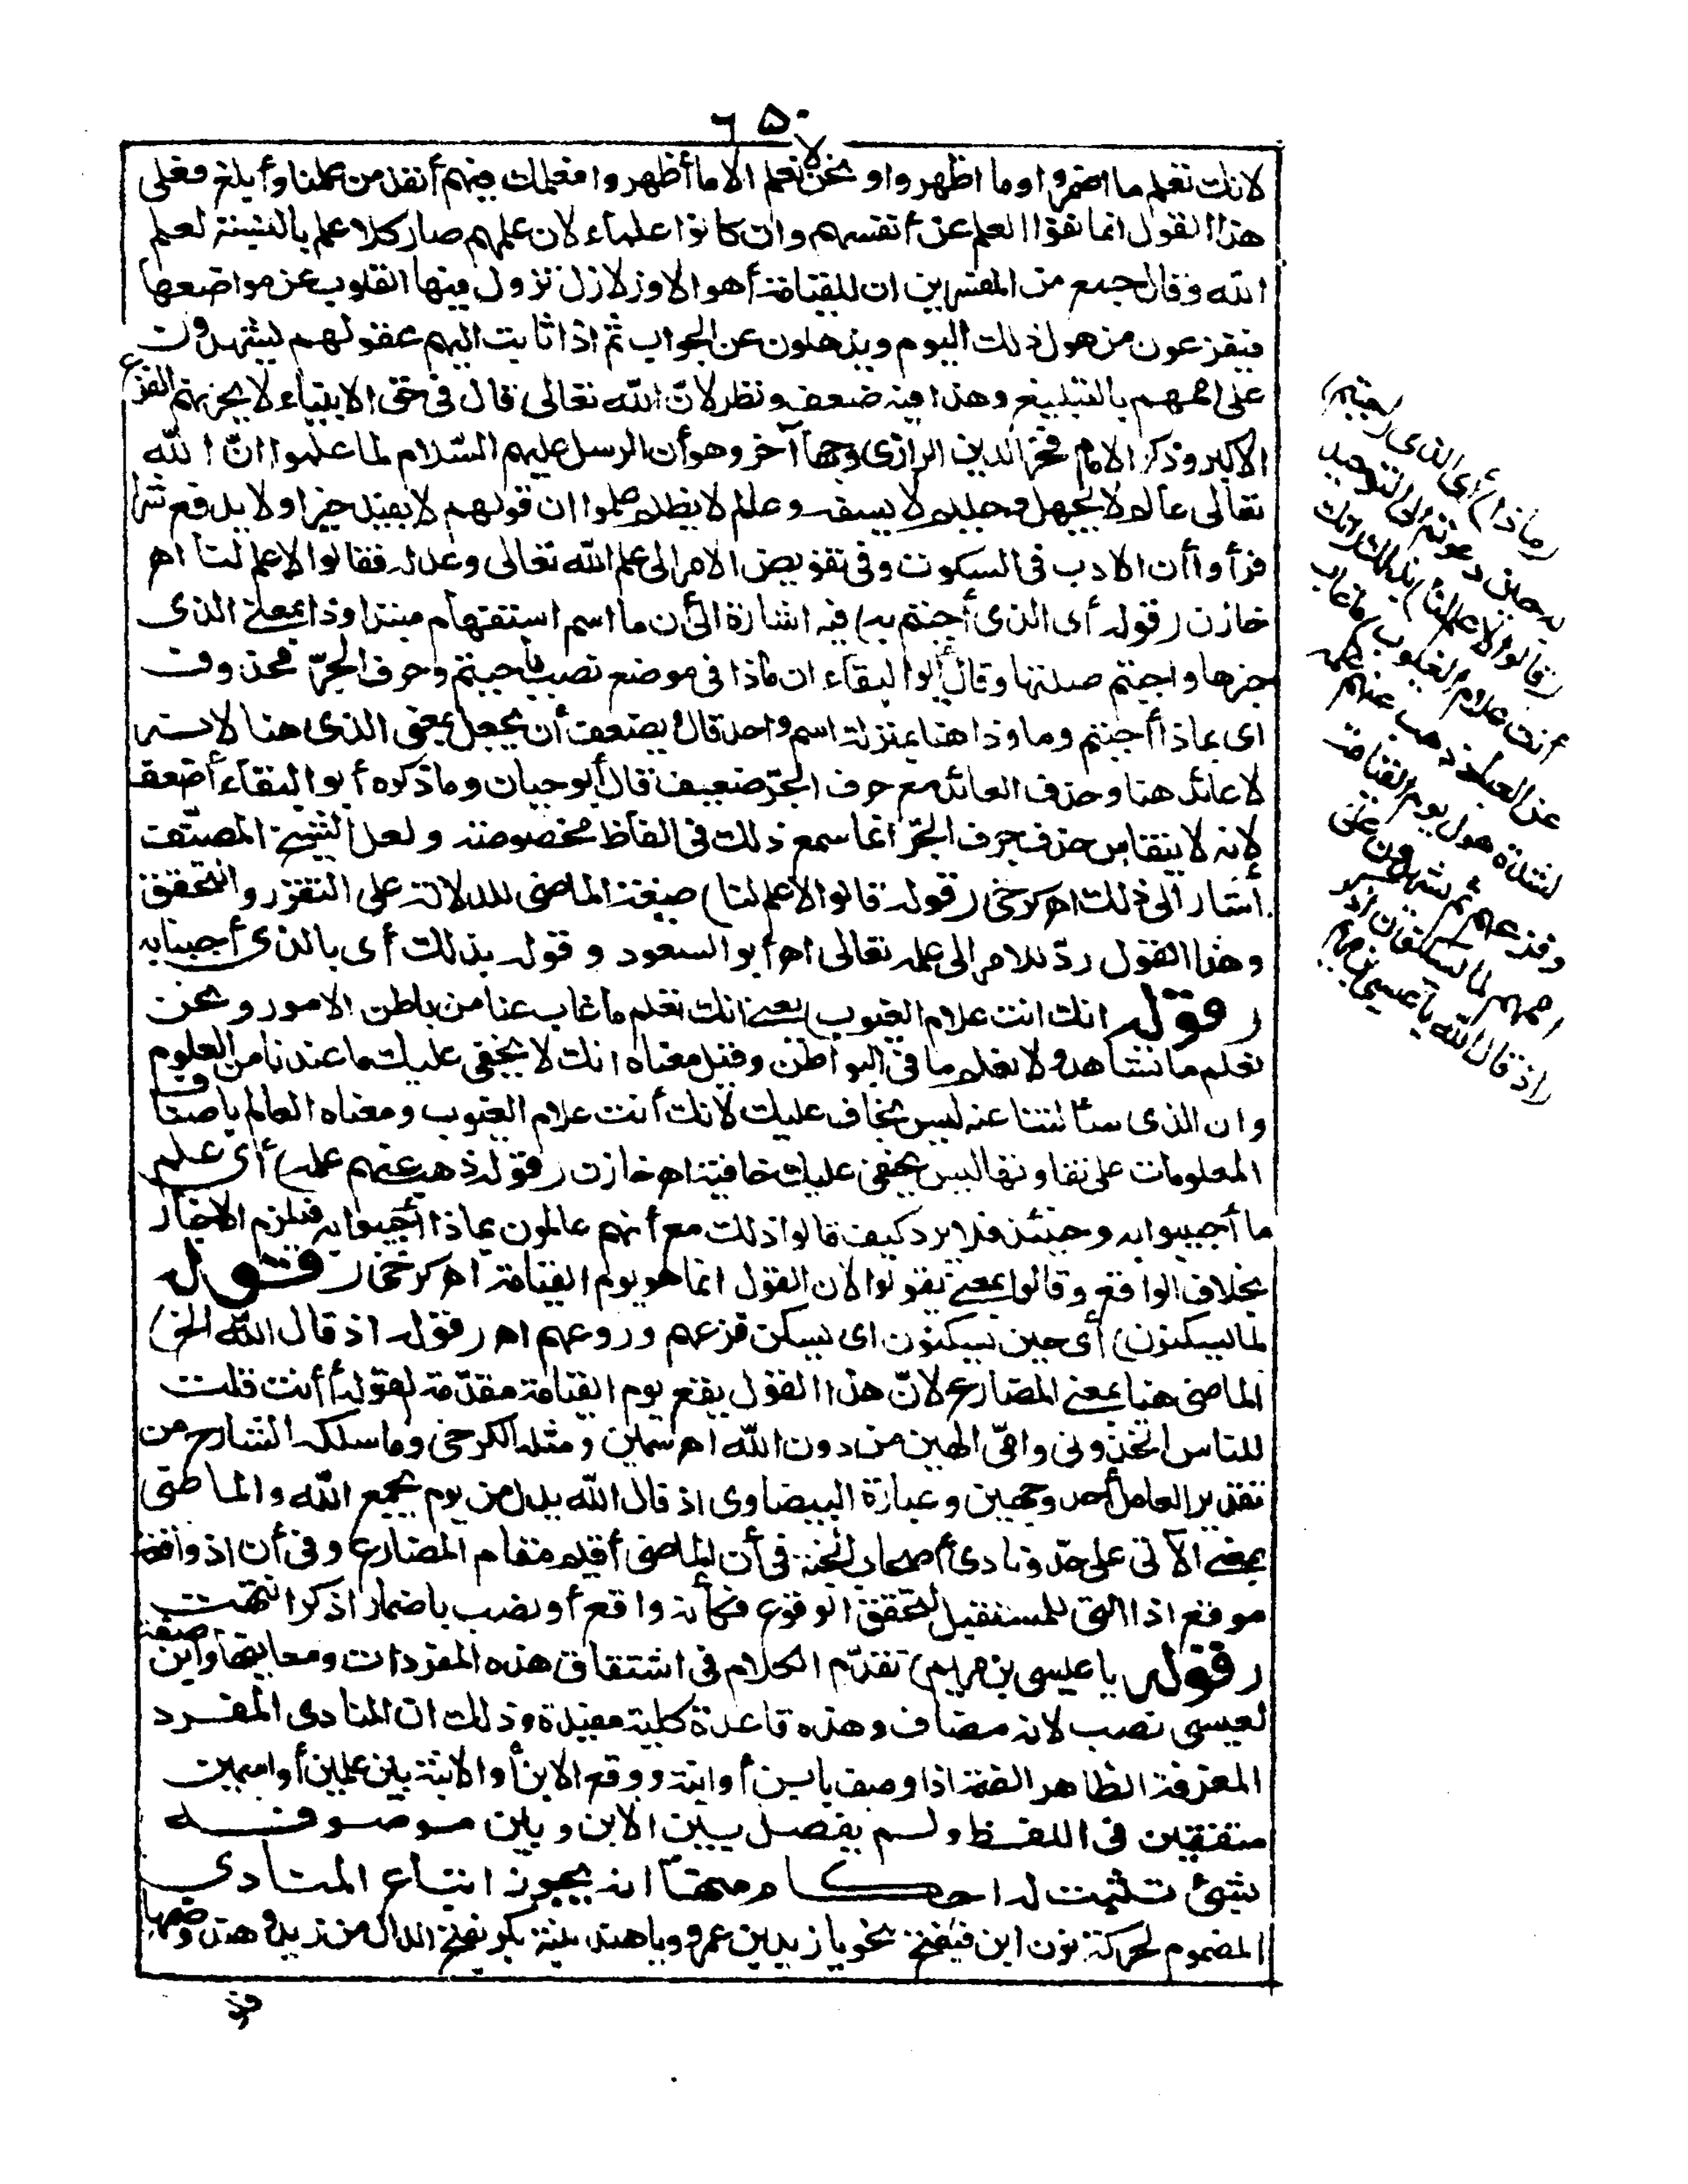 ٦٥٠
لانك تعلم ما اضمروا وما اظهروا ونحن لا نعلم الا ما أظهروا فعلمك فيهم أنفذ من علمنا وأبلغ فعلى
هذا القول انما نفوا العلم عن أنفسهم وان كانوا علماء لان علمهم صار كلا علم بالنسبة لعلم
الله وقال جمع من المفسرين ان للقيامة أهوالا وزلازل تزول فيها القلوب عن مواضعها
فيفزعون من هول ذلك اليوم ويذهلون عن الجواب ثم اذا ثابت اليهم عقولهم يشهدون
على اممهم بالتبليغ وهذا فيه ضعف ونظر لانّ الله تعالى قال فى حق الانبياء لا يحزنهم الفزع
الاكبر وذكر الامام فخر الدين الرازى وجها آخر وهو أن الرسل عليهم السّلام لما علموا انّ الله
تعالى عالم لا يجهل وحليم لا يسفه وعالم لا يظلم علموا ان قولهم لا يفيد خيرا ولا يدفع شرا
فرأوا أن الادب فى السكوت وفى تفويض الامر الى علم الله تعالى وعدله فقالوا لا علم لنا اه
خازن (قوله أى الذى أجبتم به) فيه اشارة الى أن ما اسم استفهام مبتدا وذا بمعنى الذى
خبرها واجبتم صلتها وقال أبو البقاء ان ماذا فى موضع نصب بأجبتم وحرف الجرّ محذوف
اى بماذا أجبتم وما وذا هنا بمنزلة اسم واحد قال ويضعف أن يجعل بمعنى الذى هنا لانه
لا عائد هنا وحذف العائد مع حرف الجرّ ضعيف قال أبو حيان وما ذكره أبو البقاء أضعف
لانه لا ينقاس حذف حرف الجرّ انما سمع ذلك فى الفاظ مخصوصة ولعل الشيخ المصنّف
أشار الى ذلك اه كرخى (قوله قالوا لا علم لنا) صيغة الماضى للدلالة على التقرر والتحقق
وهذا القول ردّ للامر الى علمه تعالى اه أبو السعود وقوله بذلك أى بالذى أجبنا به
(قوله انك انت علام الغيوب) يعنى انك تعلم ما غاب عنا من باطن الامور ونحن
نعلم ما نشاهد ولا نعلم ما فى البواطن وقيل معناه انك لا يخفى عليك ما عندنا من العلوم
وان الذى سألتنا عنه ليس بخاف عليك لانك أنت علام الغيوب ومعناه العالم باصناف
المعلومات على تفاوتها ليس يخفى عليك خافية اه خازن (قوله ذهب عنهم علمه) أى علم
ما أجيبوا به وحينئذ فلا يرد كيف قالوا ذلك مع أنهم عالمون بماذا أجيبوا به فيلزم الاخبار
بخلاف الواقع وقالوا بمعنى يقولوا لان القول انما هو يوم القيامة اه كرخى (قوله
لما يسكنون) أى حين يسكنون اى يسكن فزعهم وروعهم اه (قوله اذ قال الله الخ)
الماضى هنا بمعنى المضارع لانّ هذا القول يقع يوم القيامة مقدّمة لقوله أأنت قلت
للناس اتخذونى وامّى الهين من دون الله اه سمين ومثله الكرخى وما سلكه الشارح من
تقدير العامل أحد وجهين وعبارة البيضاوى اذ قال الله بدل من يوم يجمع الله والماضى
بمعنى الآتى على حدّ ونادى أصحاب الجنة فى أن الماضى أقيم مقام المضارع وفى أن اذ واقعة
موقع اذا التى للمستقبل لتحقق الوقوع فكأنه واقع أو نصب باضمار اذكر انتهت
(قوله يا عيسى بن مريم) تقدّم الكلام فى اشتقاق هذه المفردات ومعانيها وابن صفة
لعيسى نصب لانه مضاف وهذه قاعدة كلية مفيدة وذلك ان المنادى المفرد
المعرفة الظاهر الضمة اذا وصف بابن أو ابنة ووقع الابن أو الابنة بين علمين أو اسمين
متفقين فى اللفظ ولم يفصل بين الابن وبين موصوفه
بشئ تثبت له احكام منها انه يجوز اتباع المنادى
المضموم لحركة نون ابن فيفتح نحو يا زيد بن عمرو ويا هند بنة بكر بفتح الدال من زيد وهند وضمها
(ماذا) أى الذى (اجبتم)
به حين دعوتم الى التوحيد
(قالوا لا علم لنا) بذلك (انك
أنت علام الغيوب) ما غاب
عن العباد ذهب عنهم علمه
لشدة هول يوم القيامة
وفزعهم ثم يشهدون على
اممهم لما يسكنون اذكر
(اذ قال الله يا عيسى بن مريم